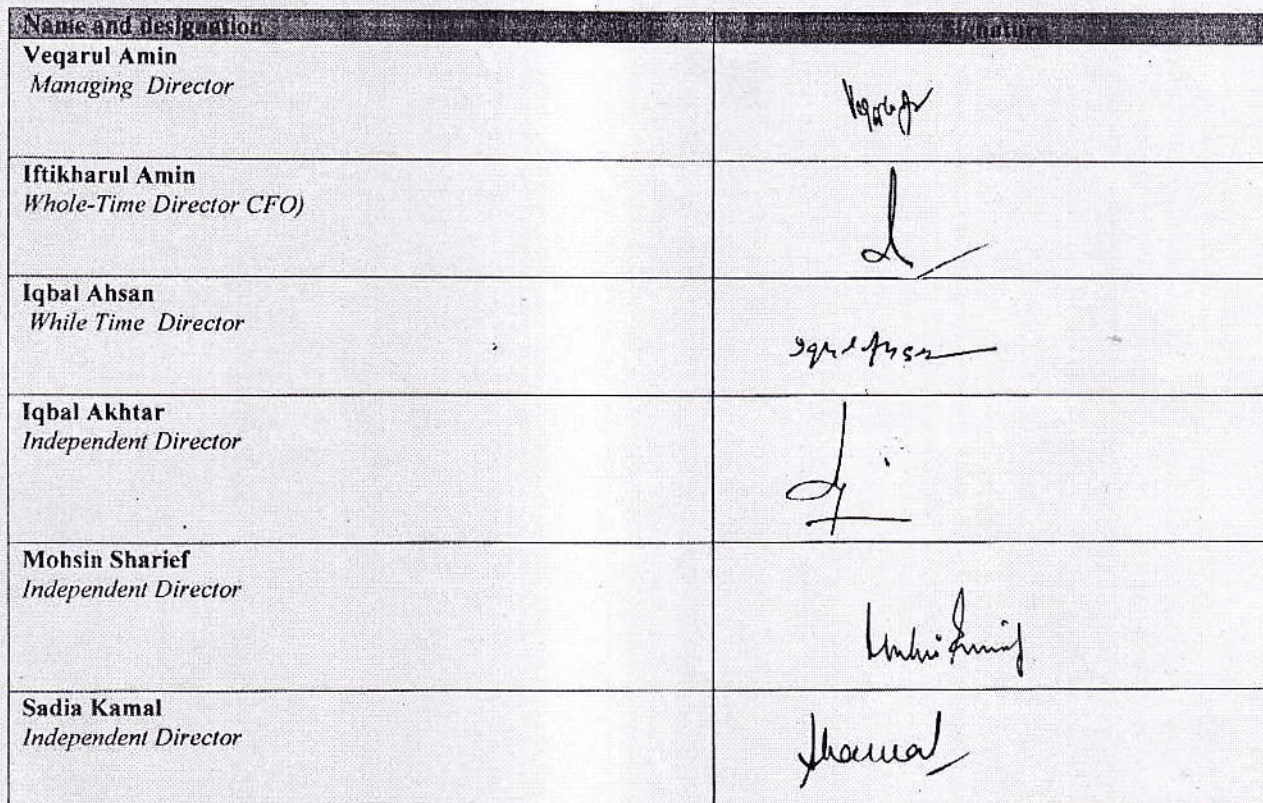 Name and designation
Signature
Veqarul Amin
Managing Director
Iftikharul Amin
Whole-Time Director CFO)
Iqbal Ahsan
While Time Director
Iqbal Ahsan
Iqbal Akhtar
Independent Director
Mohsin Sharief
Independent Director
Sadia Kamal
Independent Director